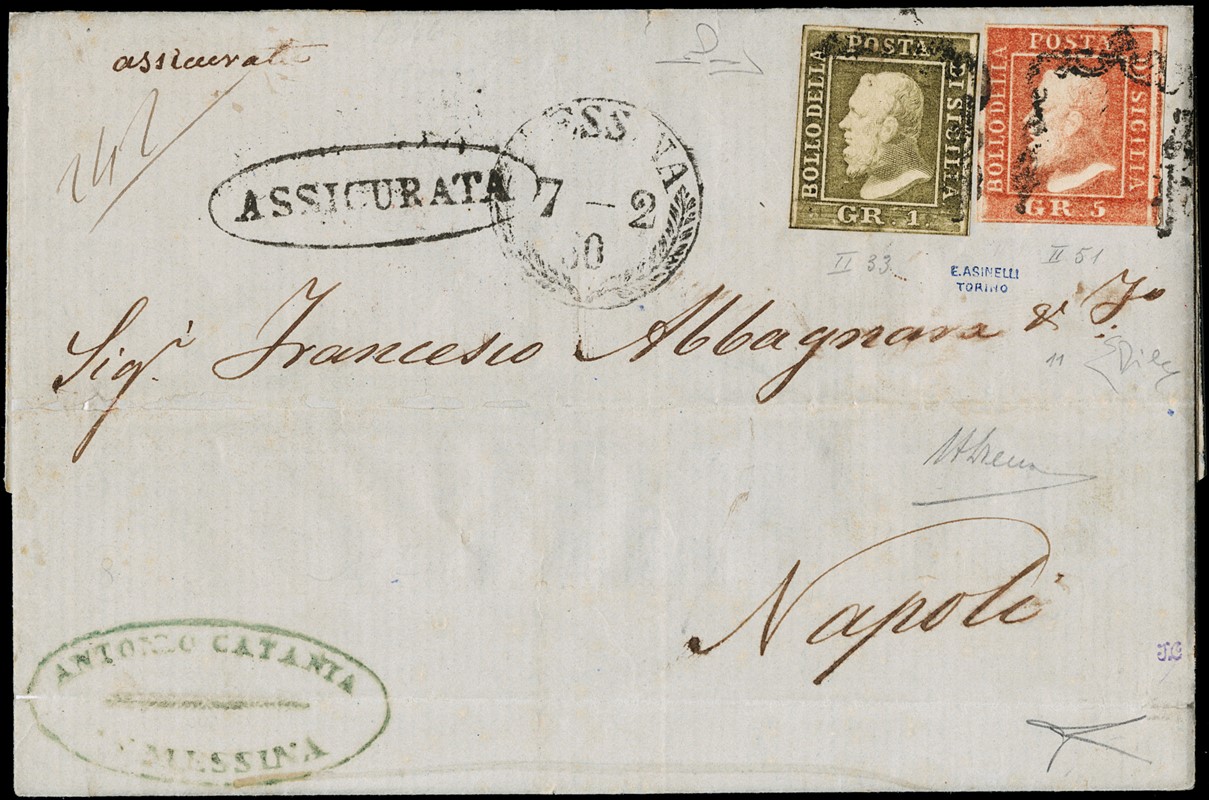 assicurata
242
ASSICURATA
MESSINA
7 – 2
60
BOLLO DELLA POSTA DI SICILIA
GR. 1.
BOLLO DELLA POSTA DI SICILIA
GR 5
II 33.
II 51
E. ASINELLI
TORINO
Sigri Francesco Abbagnara & Fo
11
EDiena
Napoli
ANTONIO CATANIA
MESSINA